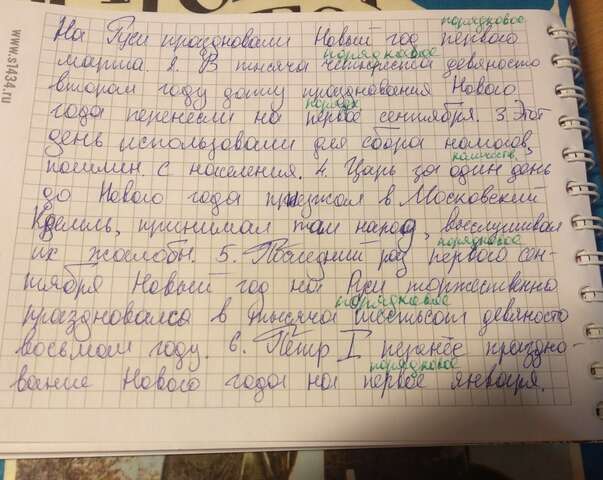 www.s1434.ru
порядковое
На Руси праздновали Новый год первого
порядковое
марта. 2. В тысяча четыреста девяносто
втором году дату празднования Нового
порядк
года перенесли на первое сентября. 3. Этот
день использовали для сбора налогов,
количеств.
пошлин с населения. 4. Царь за один день
до Нового года приезжал в Московский
Кремль, принимал там народ, выслушивал
порядковое
их жалобы. 5. Последний раз первого сен-
тября Новый год на Руси торжественно
порядковое
праздновался в тысяча шестьсот девяносто
восьмом году. 6. Пётр I перенёс праздно-
порядковое
вание Нового года на первое января.